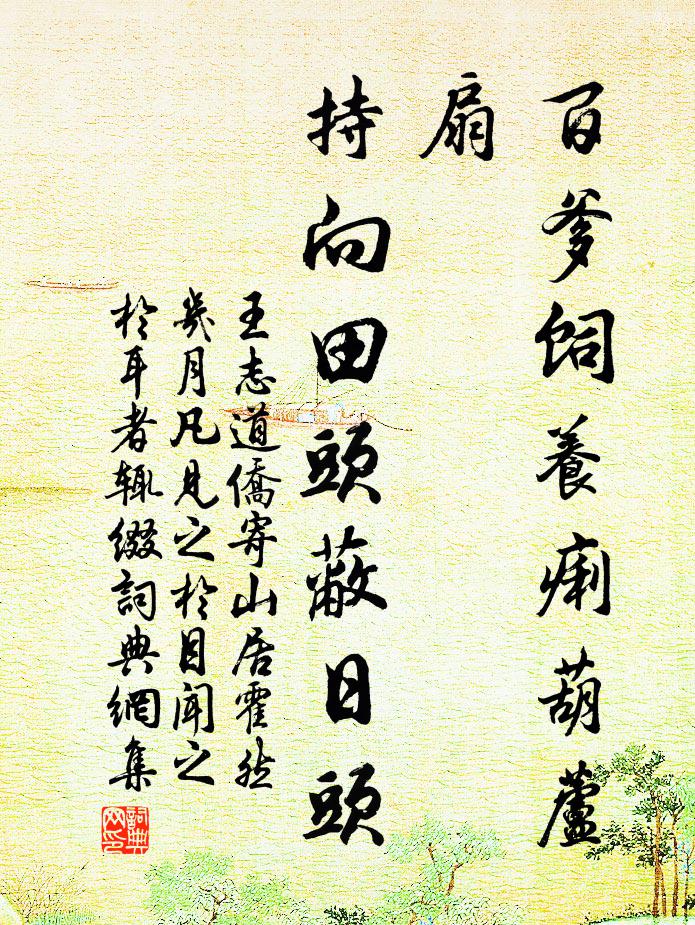 百爹飼養痢葫蘆
扇
持向田頭蔽日頭
王志道僑寄山居霍然
幾月凡見之於目聞之
於耳者輒綴詞典網集
詞典网印